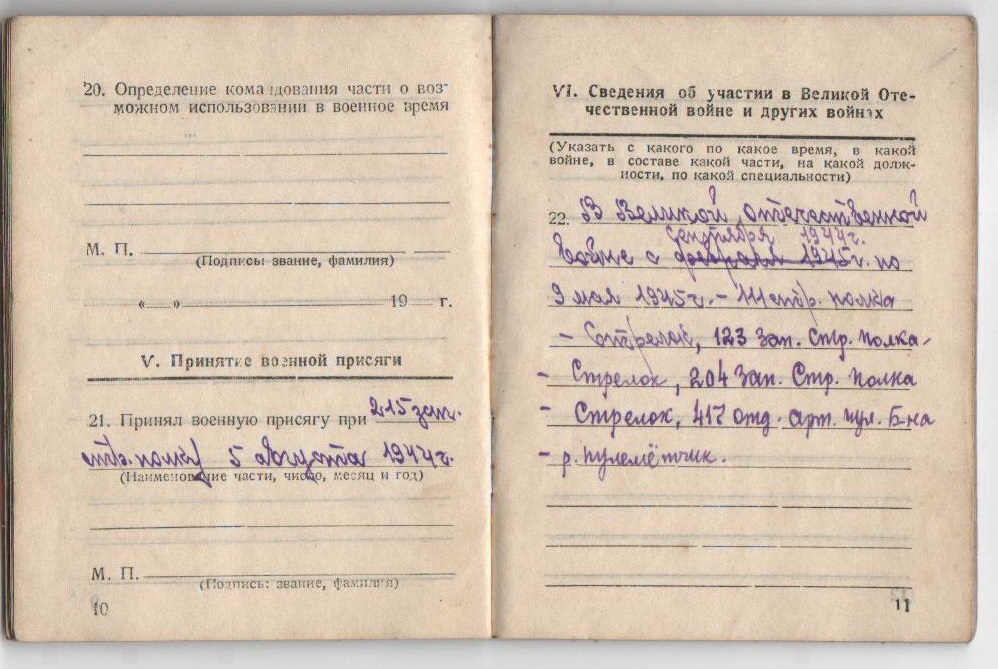 20. Определение командования части о воз-
можном использовании в военное время
М. П.
(Подпись: звание, фамилия)
« » 19 г.
V. Принятие военной присяги
21. Принял военную присягу при 215 зап.
стр. полку 5 августа 1944г.
(Наименование части, число, месяц и год)
М. П.
(Подпись: звание, фамилия)
10
VI. Сведения об участии в Великой Оте-
чественной войне и других войнах
(Указать с какого по какое время, в какой
войне, в составе какой части, на какой долж-
ности, по какой специальности)
22. В Великой отечественной
сентября 1944г.
войне с февраля 1945г. по
9 мая 1945г. - 111 стр. полка
- Стрелок, 123 зап. Стр. полка -
- Стрелок, 204 Зап. Стр. полка
- Стрелок, 417 отд. арт. пул. Б-на
- р. пулемётчик.
11